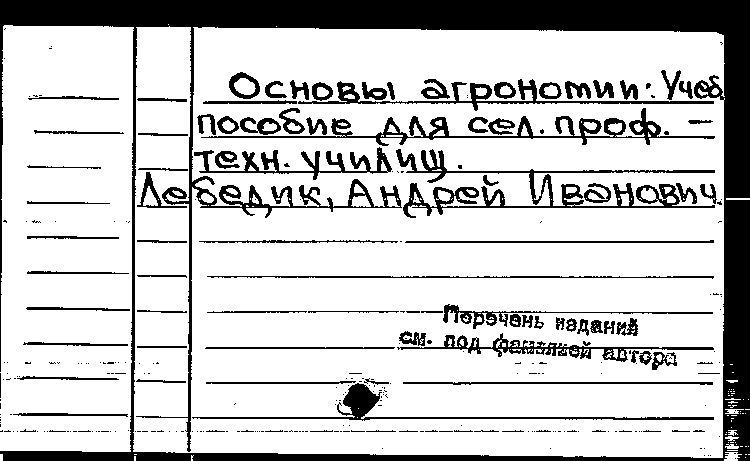 Основы агрономии: Учеб.
пособие для сел. проф. –
техн. училищ.
Лебедик, Андрей Иванович.
Перечень изданий
см. под фамилией автора